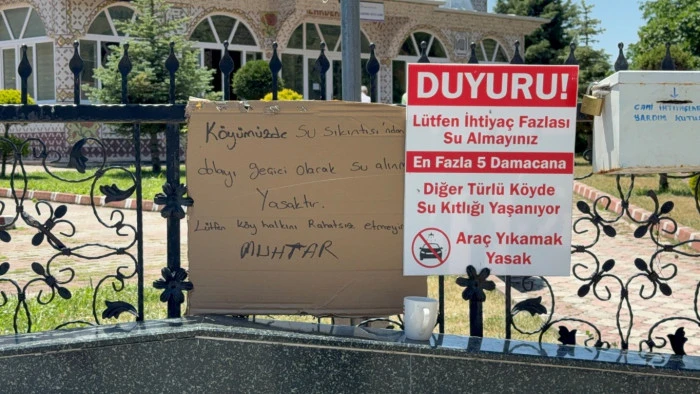 Köyümüzde su sıkıntısı'ndan
dolayı geçici olarak su alımı
Yasaktır.
Lütfen köy halkını Rahatsız etmeyin
MUHTAR
DUYURU!
Lütfen İhtiyaç Fazlası
Su Almayınız
En Fazla 5 Damacana
Diğer Türlü Köyde
Su Kıtlığı Yaşanıyor
Araç Yıkamak
Yasak
CAMİ İHTİYAÇLARI
YARDIM KUTUSU